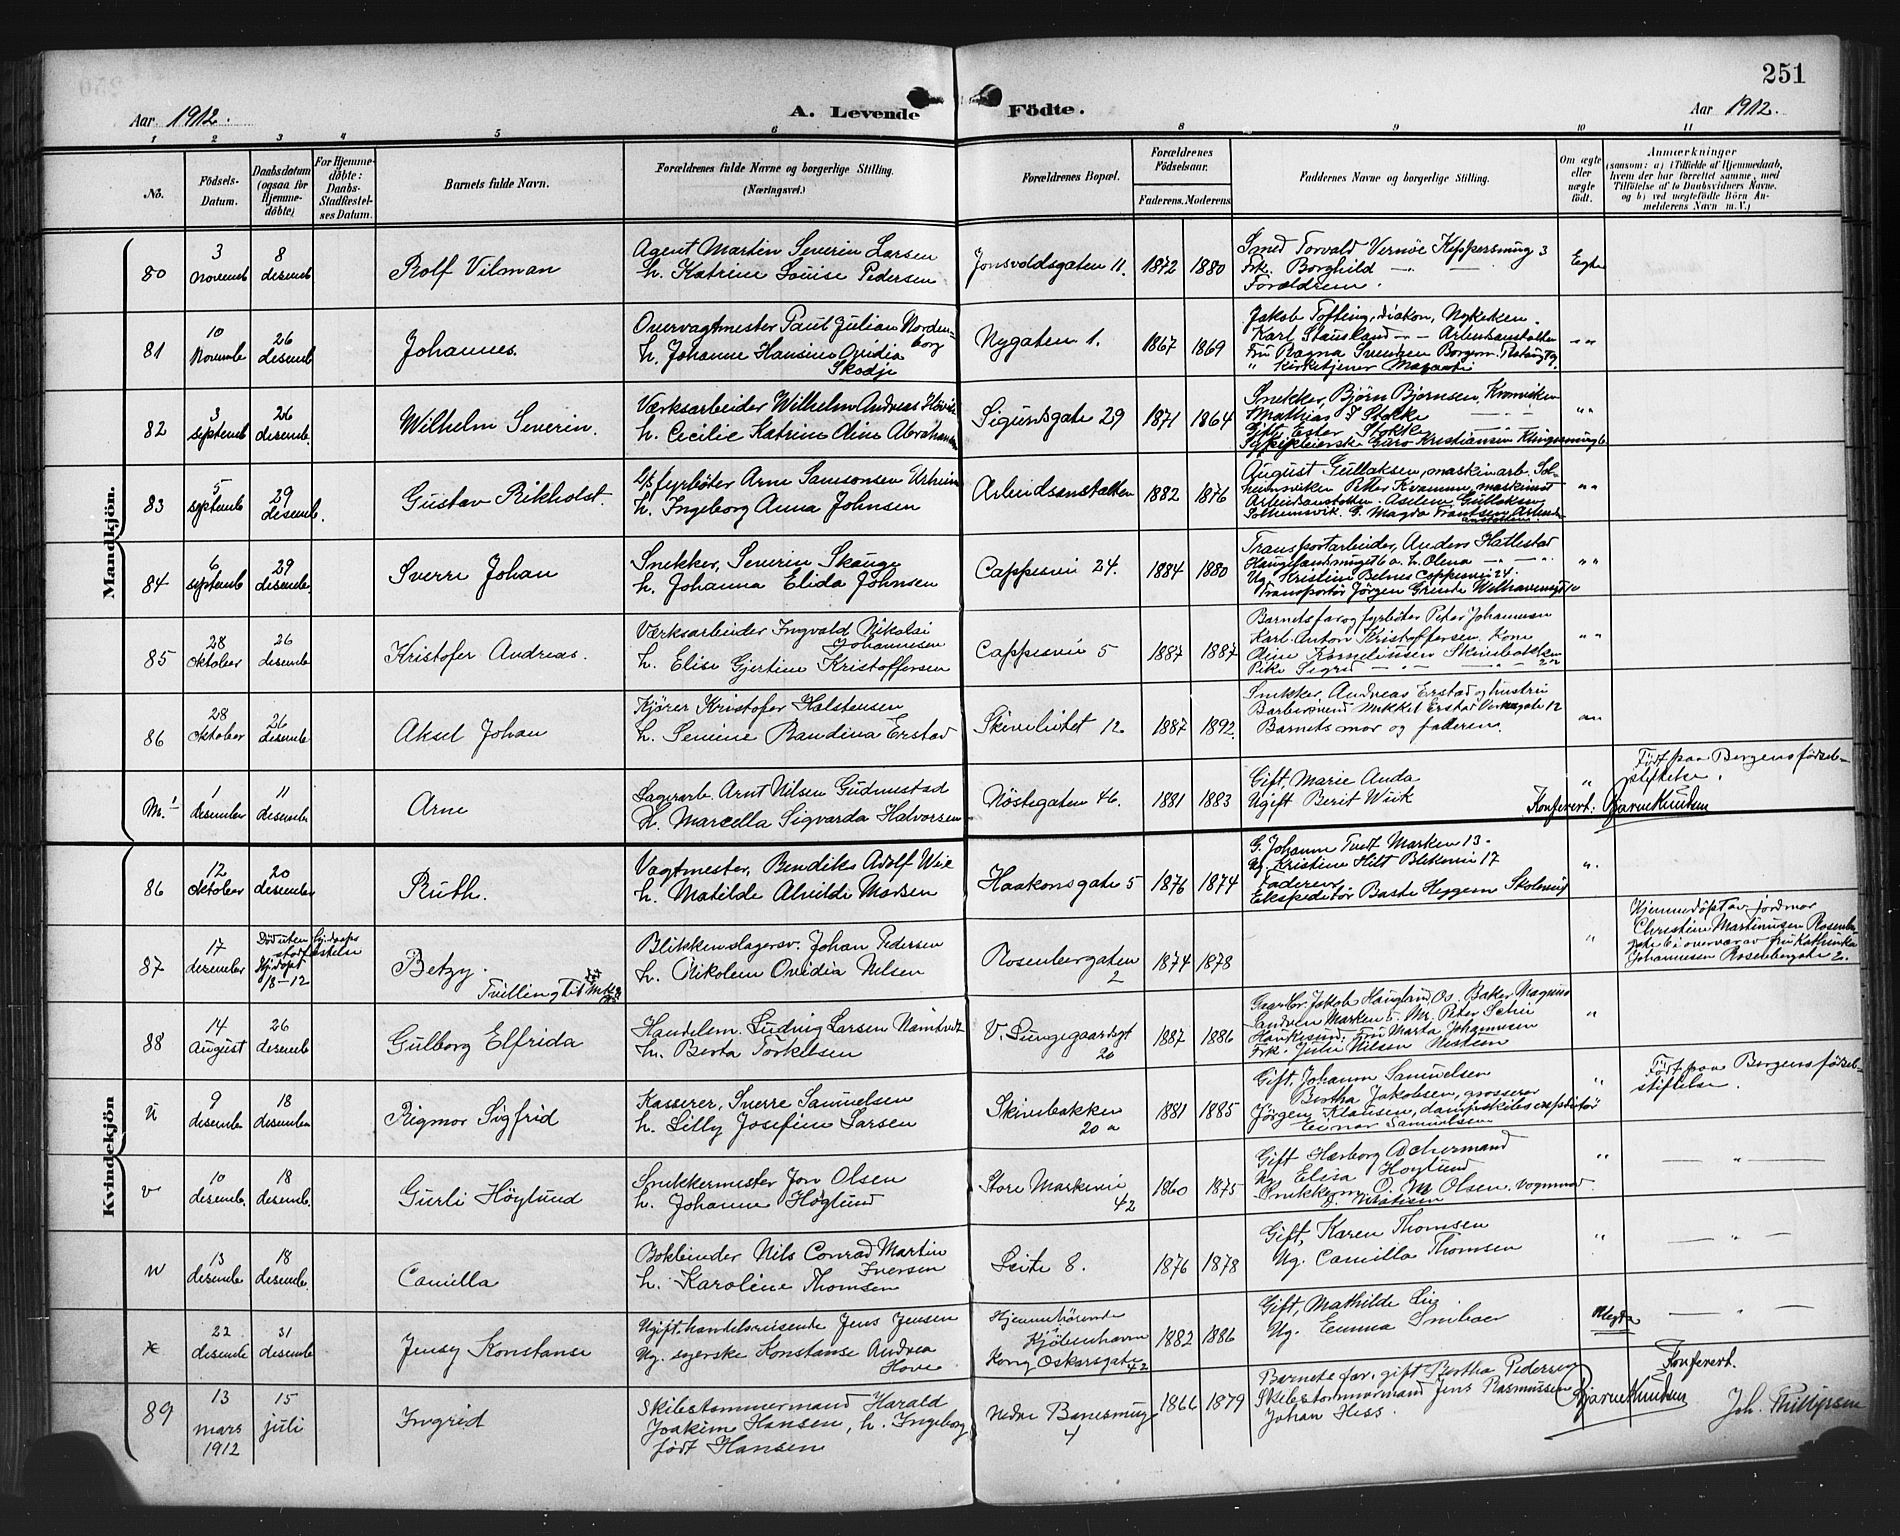 251
Aar 1912.
A. Levende Födte.
Aar 1912.
1 2 3 4 5 6 8 9 10 11
No.
Födsels-
Datum.
Daabsdatum
(ogsaa for
Hjemme-
döbte)
For Hjemme-
döbte:
Daabs-
Stadfæstel-
ses Datum.
Barnets fulde Navn.
Forældrenes fulde Navne og borgerlige Stilling.
(Næringsvei.)
Forældrenes Bopæl.
Forældrenes
Födselsaar.
Faderens. Moderens
Faddernes Navne og borgerlige Stilling.
Om ægte
eller
uægte
født.
Anmærkninger
(saasom: a) i Tilfælde af Hjemmedaab,
hvem der har forrettet samme, med
Tilföielse af to Daabsvidners Navne,
og b) ved uægtefödte Börn An-
melderens Navn m. V.)
Mandkjön.
80
3 novemb
8 desemb
Rolf Vilman
Agent Martin Severin Larsen
h. Katrine Louise Pedersen
Jonsvoldsgaten 11.
1872 1880
Smed Torvald Vernøe Kippersmug 3
Frk. Borghild — " —
Forældrene.
Egte
81
10 Novembe
26 desemb
Johannes.
Overvagtmester Paul Julian Norden-
borg
h. Johanne Hansine Ovidia
Skodje
Nygaten 1.
1867 1869
Jakob Tofting, diakon, Nykirken.
Karl Stausland — " — Arbeidsanstalten
Fru Ragna Svendsen Borgerm. Platougt
" Kirketjener
" "
82
3 septemb
26 desemb.
Wilhelm Severin.
Værksarbeider Wilhelm Andreas Hövik
h. Cecilie Katrine Oline Abrahamsen
Sigurdsgate 29
1871 1864
Snekker, Bjørn Bjørnsen, Kronviken
Mathias P Stokke
Gift, Ester Stokke
Sypikeierske Guro Kristiansen Klingesmug 6
" "
83
5 septemb
29 desemb.
Gustav Rikholst.
d/s fyrbøter Arne Samsonsen Urheim
h. Ingeborg Anna Johnsen
Arbeidsanstalten
1882 1876
August Gullaksen, maskinarb. Sol-
heimsviken Petter Kvamme, maskinist
Arbeidsanstalten. Aselen Gullaksen
Solheimsvik. G. Magda Frantsen Arbeids-
anstalten.
" "
84
6 septemb
29 desemb.
Sverre Johan
Snekker, Severin Skauge
h. Johanna Elida Johnsen
Cappesvei 24.
1884 1880
Transportarbeider, Anders Hatlestad
Haugelandsmuget 6 a. h. Olena — " —
Ug. Kristine Cappesvei 24.
Transportør Jørgen Grinde Welhavensgt 10
" "
85
28 oktober
26 desemb
Kristofer Andreas.
Værksarbeider Ingvald Nikolai
Johannesen
h. Elise Gjertine Kristoffersen
Cappesvei 5
1887 1887
Barnets far og fyrbøter Peter Johannesen
Karl Anton Kristoffersen. Kone
Oline Kornelinssen Skivebakken
Pike Sigrid — " — — " — 20a
" "
86
28 oktober
26 desemb
Aksel Johan
Kjører Kristofer Halstensen
h. Senine Randina Erstad
Skivelivtet 12
1887 1892.
Snekker, Andreas Erstad og hustru
Barbersvend Mikkel Erstad Verksgate 12
Barnets mor og faderen.
" "
M.1
1 desember
11 desemb.
Arne
Lagerarb. Arnt Nilsen Gudmestad
H. Marcella Sigvarda Halvorsen
Nöstegaten 46.
1881 1883
Gift, Marie Anda
Ugift Berit Wiik
"
Født paa Bergens fødsels-
stiftelse.
Konferert: Bjarne Knudsen
Kvindekjön
86
12 oktober
20 desember
Ruth.
Vagtmester, Bendiks Adolf Wiik
h. Matilde Alvilde Madsen
Haakonsgate 5
1876 1874
G. Johanne Tvedt Marken 13.
Ug. Kristine Hilt Blekevei 17
Faderen
Ekspeditør Baste Heggem Skolesmug
"
87
17 desember
Død uten hj.daaps
stadfæstelse
Hj.døpt
18-12
Betzy.
Tvilling til
Blikkenslagersv. Johan Pedersen
h. Nikolem Ovidia Nilsen
Rosenbergaten
2
1874 1878
"
Hjemmedøpt av jordmor
Christine Martinusen Rosenber-
gate 6 i overvær av fru Kathinka
Johannesen Rosenbergate 2.
88
14 August
26 desemb
Gulborg Elfrida
Handelsm. Ludvig Larsen Namtvedt
h. Berta Torkelsen
V. Lungegaardsgt
20
1887 1886
Gaardbr. Jakob Haugland, Os. Baker Magnus
Landveen Marken 5. Mr. Peter Schie
Haukesund. Fru Marta Johannesen
Frk. Julie Nilsen Nesteen
"
U
9 desembe
18 desembe
Rigmor Sigfrid
Kasserer, Sverre Samuelsen
h. Lilly Josefine Larsen
Skivebakken
20 a
1881 1885
Gift, Johanne Samuelsen
Bertha Jakobsen, grosserer
Jørgen Klausen, dampskibsexpeditør
Einar Samuelsen
"
Født paa Bergens fødsels-
stiftelse.
V
10 desemb.
18 desemb.
Gurli Höylund
Snikkermester Jon Olsen
h. Johanne Höglund
Store Markevei
42
1860 1875
Gift Herborg Achermand
Ug. Elisa Hoylund
Snikkerm. O. M. Olsen. vognmand
"
— " —
W
13 desembe
18 desemb.
Camilla
Bokbinder Nils Conrad Martin
Iversen
h. Karoline Thomsen
Leite 8.
1876 1878
Gift, Karen Thomsen
Ug. Camilla Thomsen
"
— " —
X
22 desembe
31 desemb
Jensy Konstanse
Ugift. handelsreisende Jens Jensen
Ug. syerske Konstanse Andrea
Hove
Hjemmehörende
i Kjöbenhavn
Kong Oskarsgate 42
1882 1886
Gift, Mathilde Lie
Ug. Emma
Uegte
— " —
89
13 mars 1912
15 juli
Ingrid
Skibstømmermand Harald
Joakim Hansen, h. Ingeborg
født Hansen
Nedre Banesmug
4
1866 1879
Barnets far, gift Bertha Pedersen
Skibstømmermand Jens Rasmussen
Johan Hess.
Konferert.
Bjarne Knudsen
Joh. Phillipsen